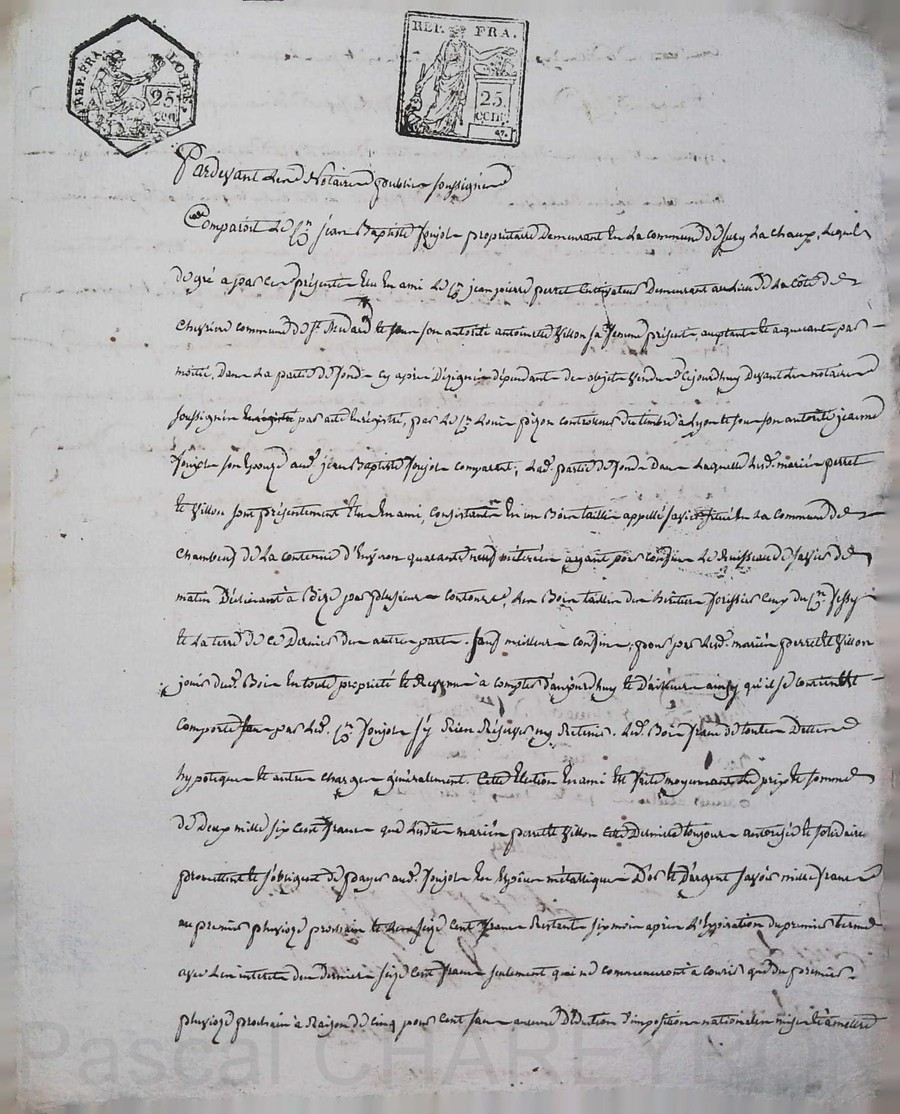 REP. FRA. LOIRE
25 cen.
REP. FRA.
25 cent.
Pardevant les Notaires publics soussignés
Comparoit le Cn jean Baptiste Joujol propriétaire demeurant en la commune de Sury La Chaux, lequel
de gré a par ces présentes élu en ami le Cn jean pierre perret Cultivateur demeurant au lieu de la Côte de
Chevrière commune de St Medard et sous son autorité antoinette Villon sa femme présents, acceptants et acquerants par
moitié, dans la partie de fonds cy après désignée dépendant des objets vendus cejourdhuy devant les notaires
soussignés par acte enrégistré, par le Cn Louis controleur du timbre à Lyon et sous son autorité jeanne
Joujol son Epouze aud. jean Baptiste Joujol comparant; Lad. partie de fonds dans laquelle lesd. mariés perret
et Villon sont présentement élus en ami, consistante en un Bois taillis appellé situé en la commune de
Chambeuf de la contenue d'Environ quarante neuf méterées ayant pour confin le Ruisseau de
matin à Bize par plusieurs contours, les Bois taillis des héritiers ceux du Cn
et la terre de ce Dernier des autres parts. Sauf meilleurs confins; pour par lesd. mariés perret et Villon
jouir dud. Bois en toute propriété et Revenus à compter d'aujourdhuy et ainsy qu'il se contient et
comporte sans par led. Cn Joujol s'y Rien Réserver ny Retenir. Led. Bois franc de toutes Dettes
hypotèque et autres charges généralement. Cette Election en ami est faite moyennant le prix et somme
de Deux mille six Cent francs que lesdits mariés perret et Villon cette Dernière toujours autorisée et solidaire
promettent et s'obligent de payer aud. Joujol en Espèces métalliques d'or et D'argent savoir mille francs
au premier pluvioze prochain et les seize Cent francs Restants six mois après L'Expiration du premier terme
avec les interets des Derniers seize Cent francs seulement qui ne commenceront à courir que du premier
pluvioze prochain à Raison de cinq pour cent sans aucune Déduction d'impositions nationales mises et à mettre
Pascal CHAREYRON